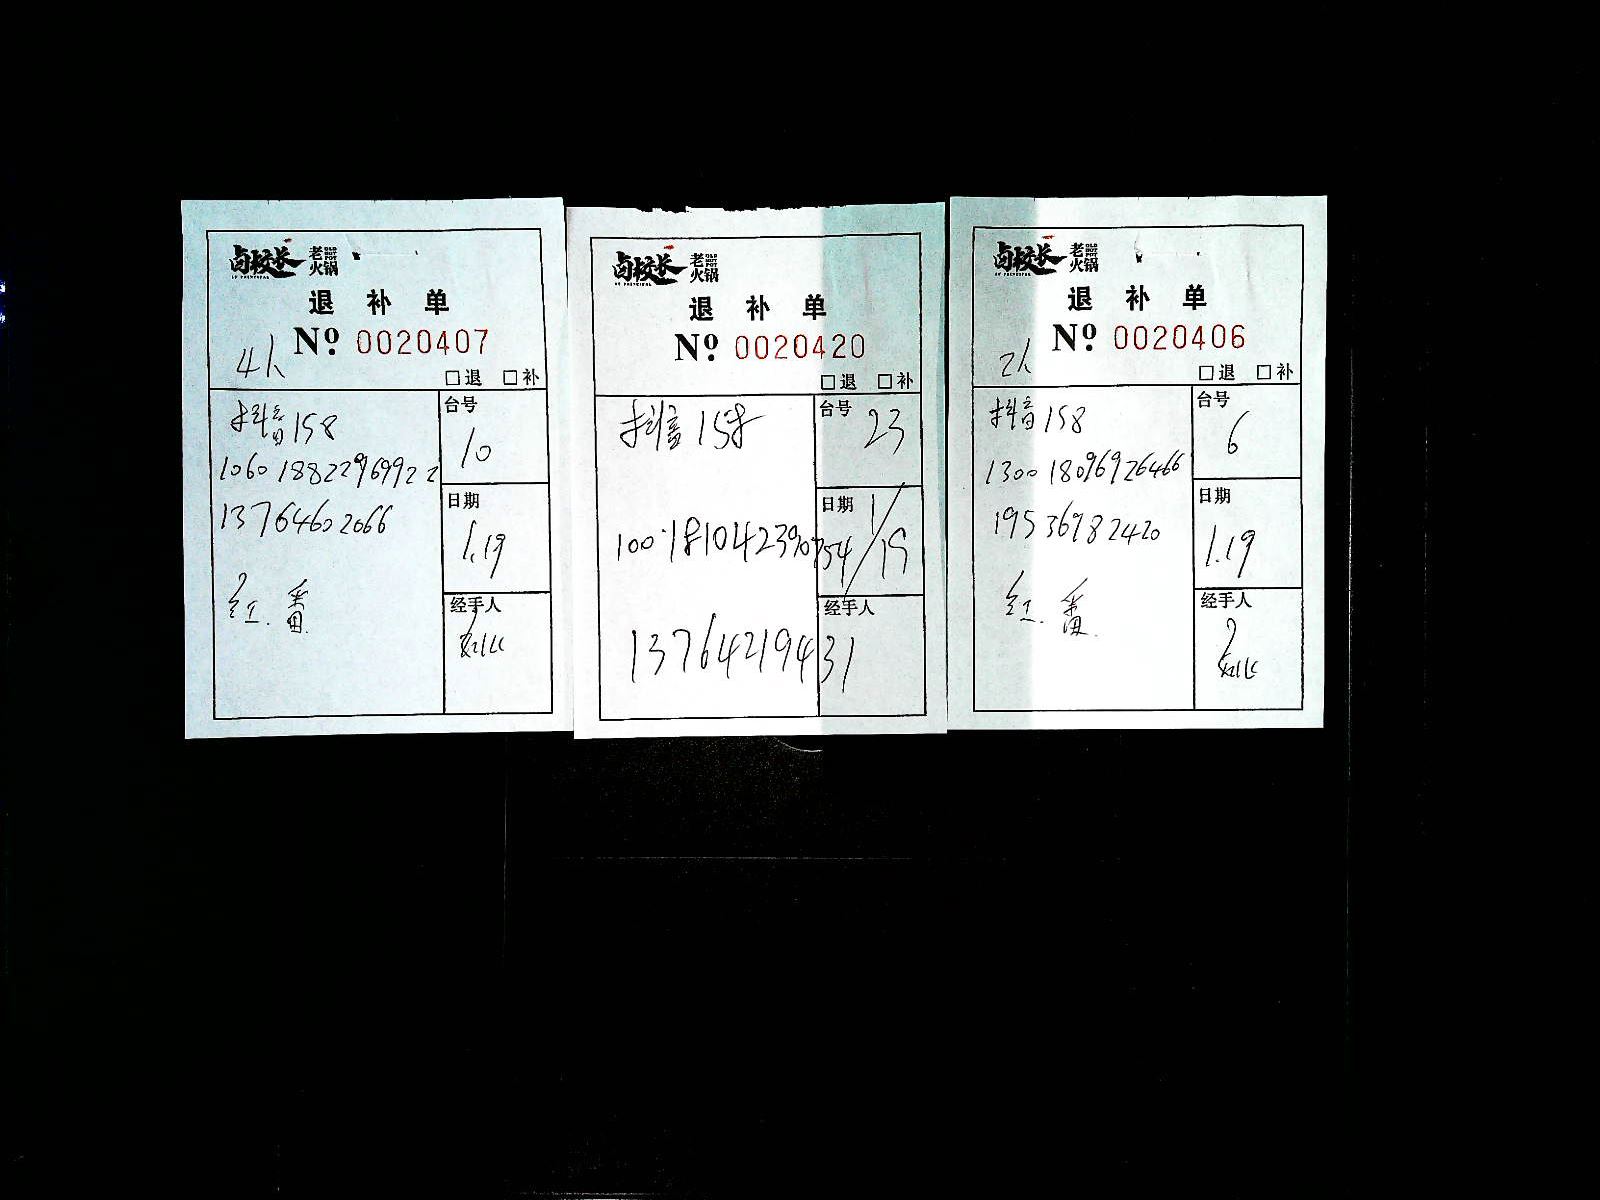 卤校长 老火锅 OLD HOT POT
LU PRINCIPAL
退 补 单
4人 Nº 0020407
□退 □补
抖音158
1060 18822969922
13764602066
红.番.
台号
10
日期
1.19
经手人
卤校长 老火锅 OLD HOT POT
LU PRINCIPAL
退 补 单
Nº 0020420
□退 □补
抖音 158
100.181042390754
13764219431
台号
23
日期
1/19
经手人
卤校长 老火锅 OLD HOT POT
LU PRINCIPAL
退 补 单
2人 Nº 0020406
□退 □补
抖音158
1300 18096926466
19536982420
红.番.
台号
6
日期
1.19
经手人